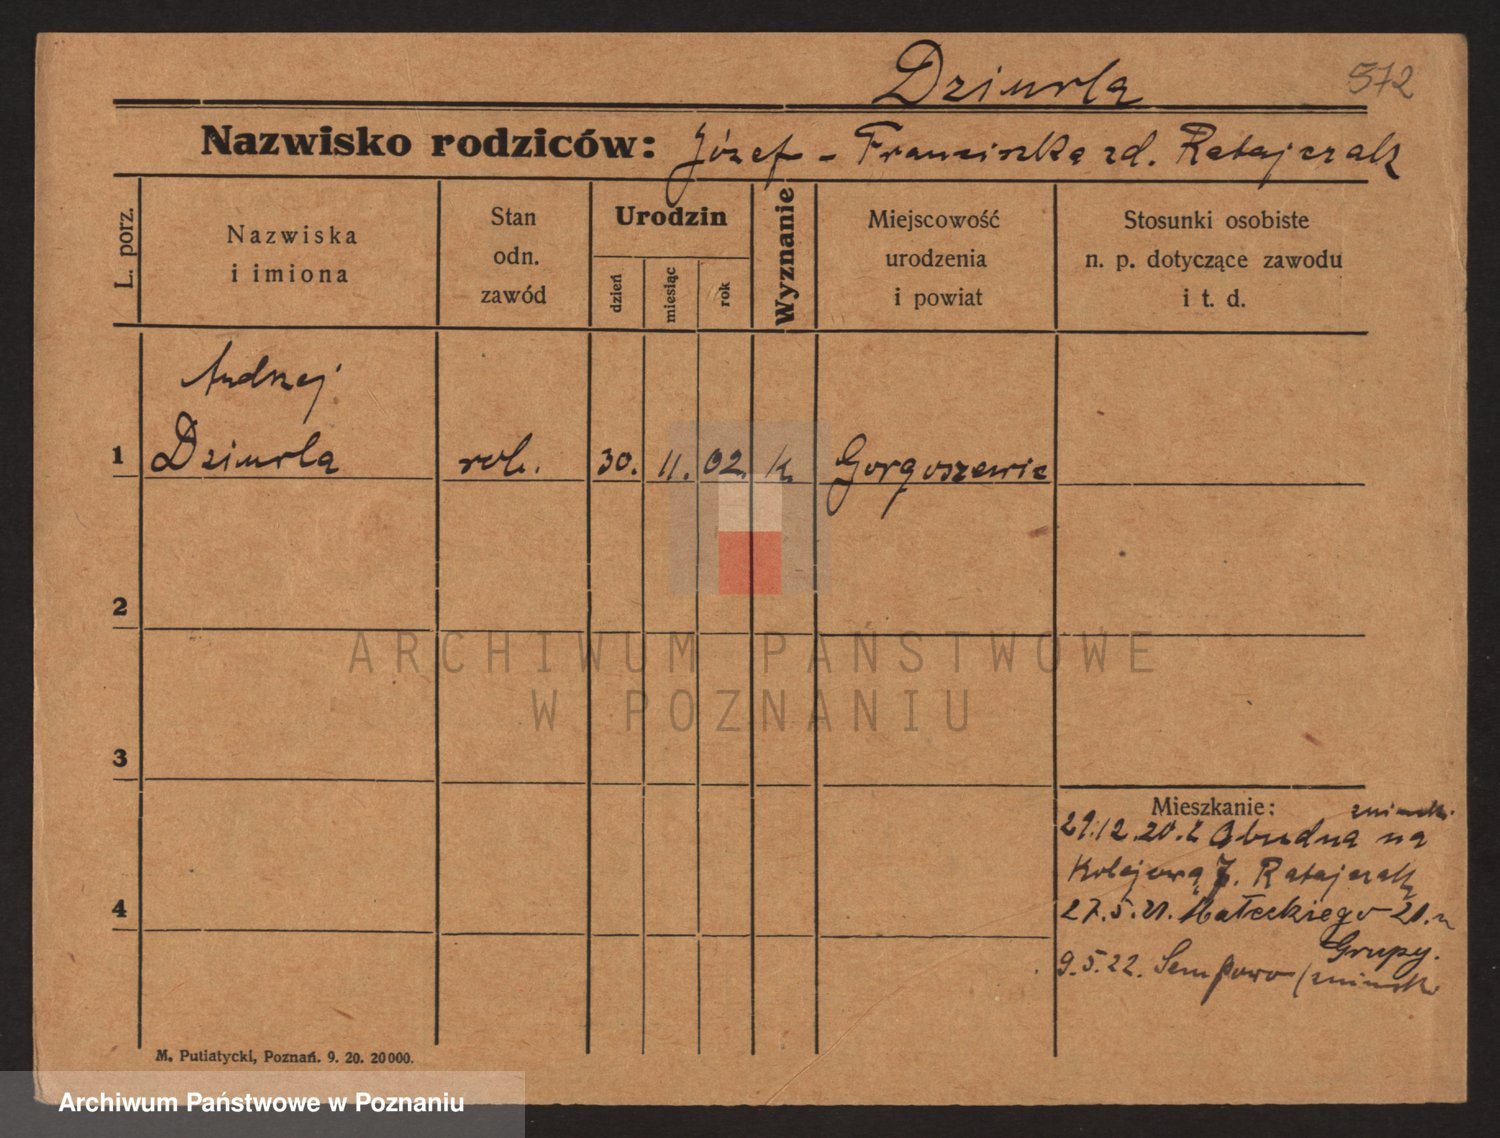 Dziurla
572
Nazwisko rodziców: Józef - Franciszka zd. Ratajczak
L. porz.
Nazwiska
i imiona
Stan
odn.
zawód
Urodzin
dzień
miesiąc
rok
Wyznanie
Miejscowość
urodzenia
i powiat
Stosunki osobiste
n. p. dotyczące zawodu
i t. d.
Andrzej
1 Dziurla rob. 30. 11. 02. k. Gorgoszewic
2
ARCHIWUM PAŃSTWOWE
W POZNANIU
3
Mieszkanie:
29.12.20. z na
Kolejową 7. Ratajczak
4
27.5.21. Małeckiego 21. z
Grupy.
9.5.22. Sempowo
M. Putiatycki, Poznań. 9. 20. 20000.
Archiwum Państwowe w Poznaniu